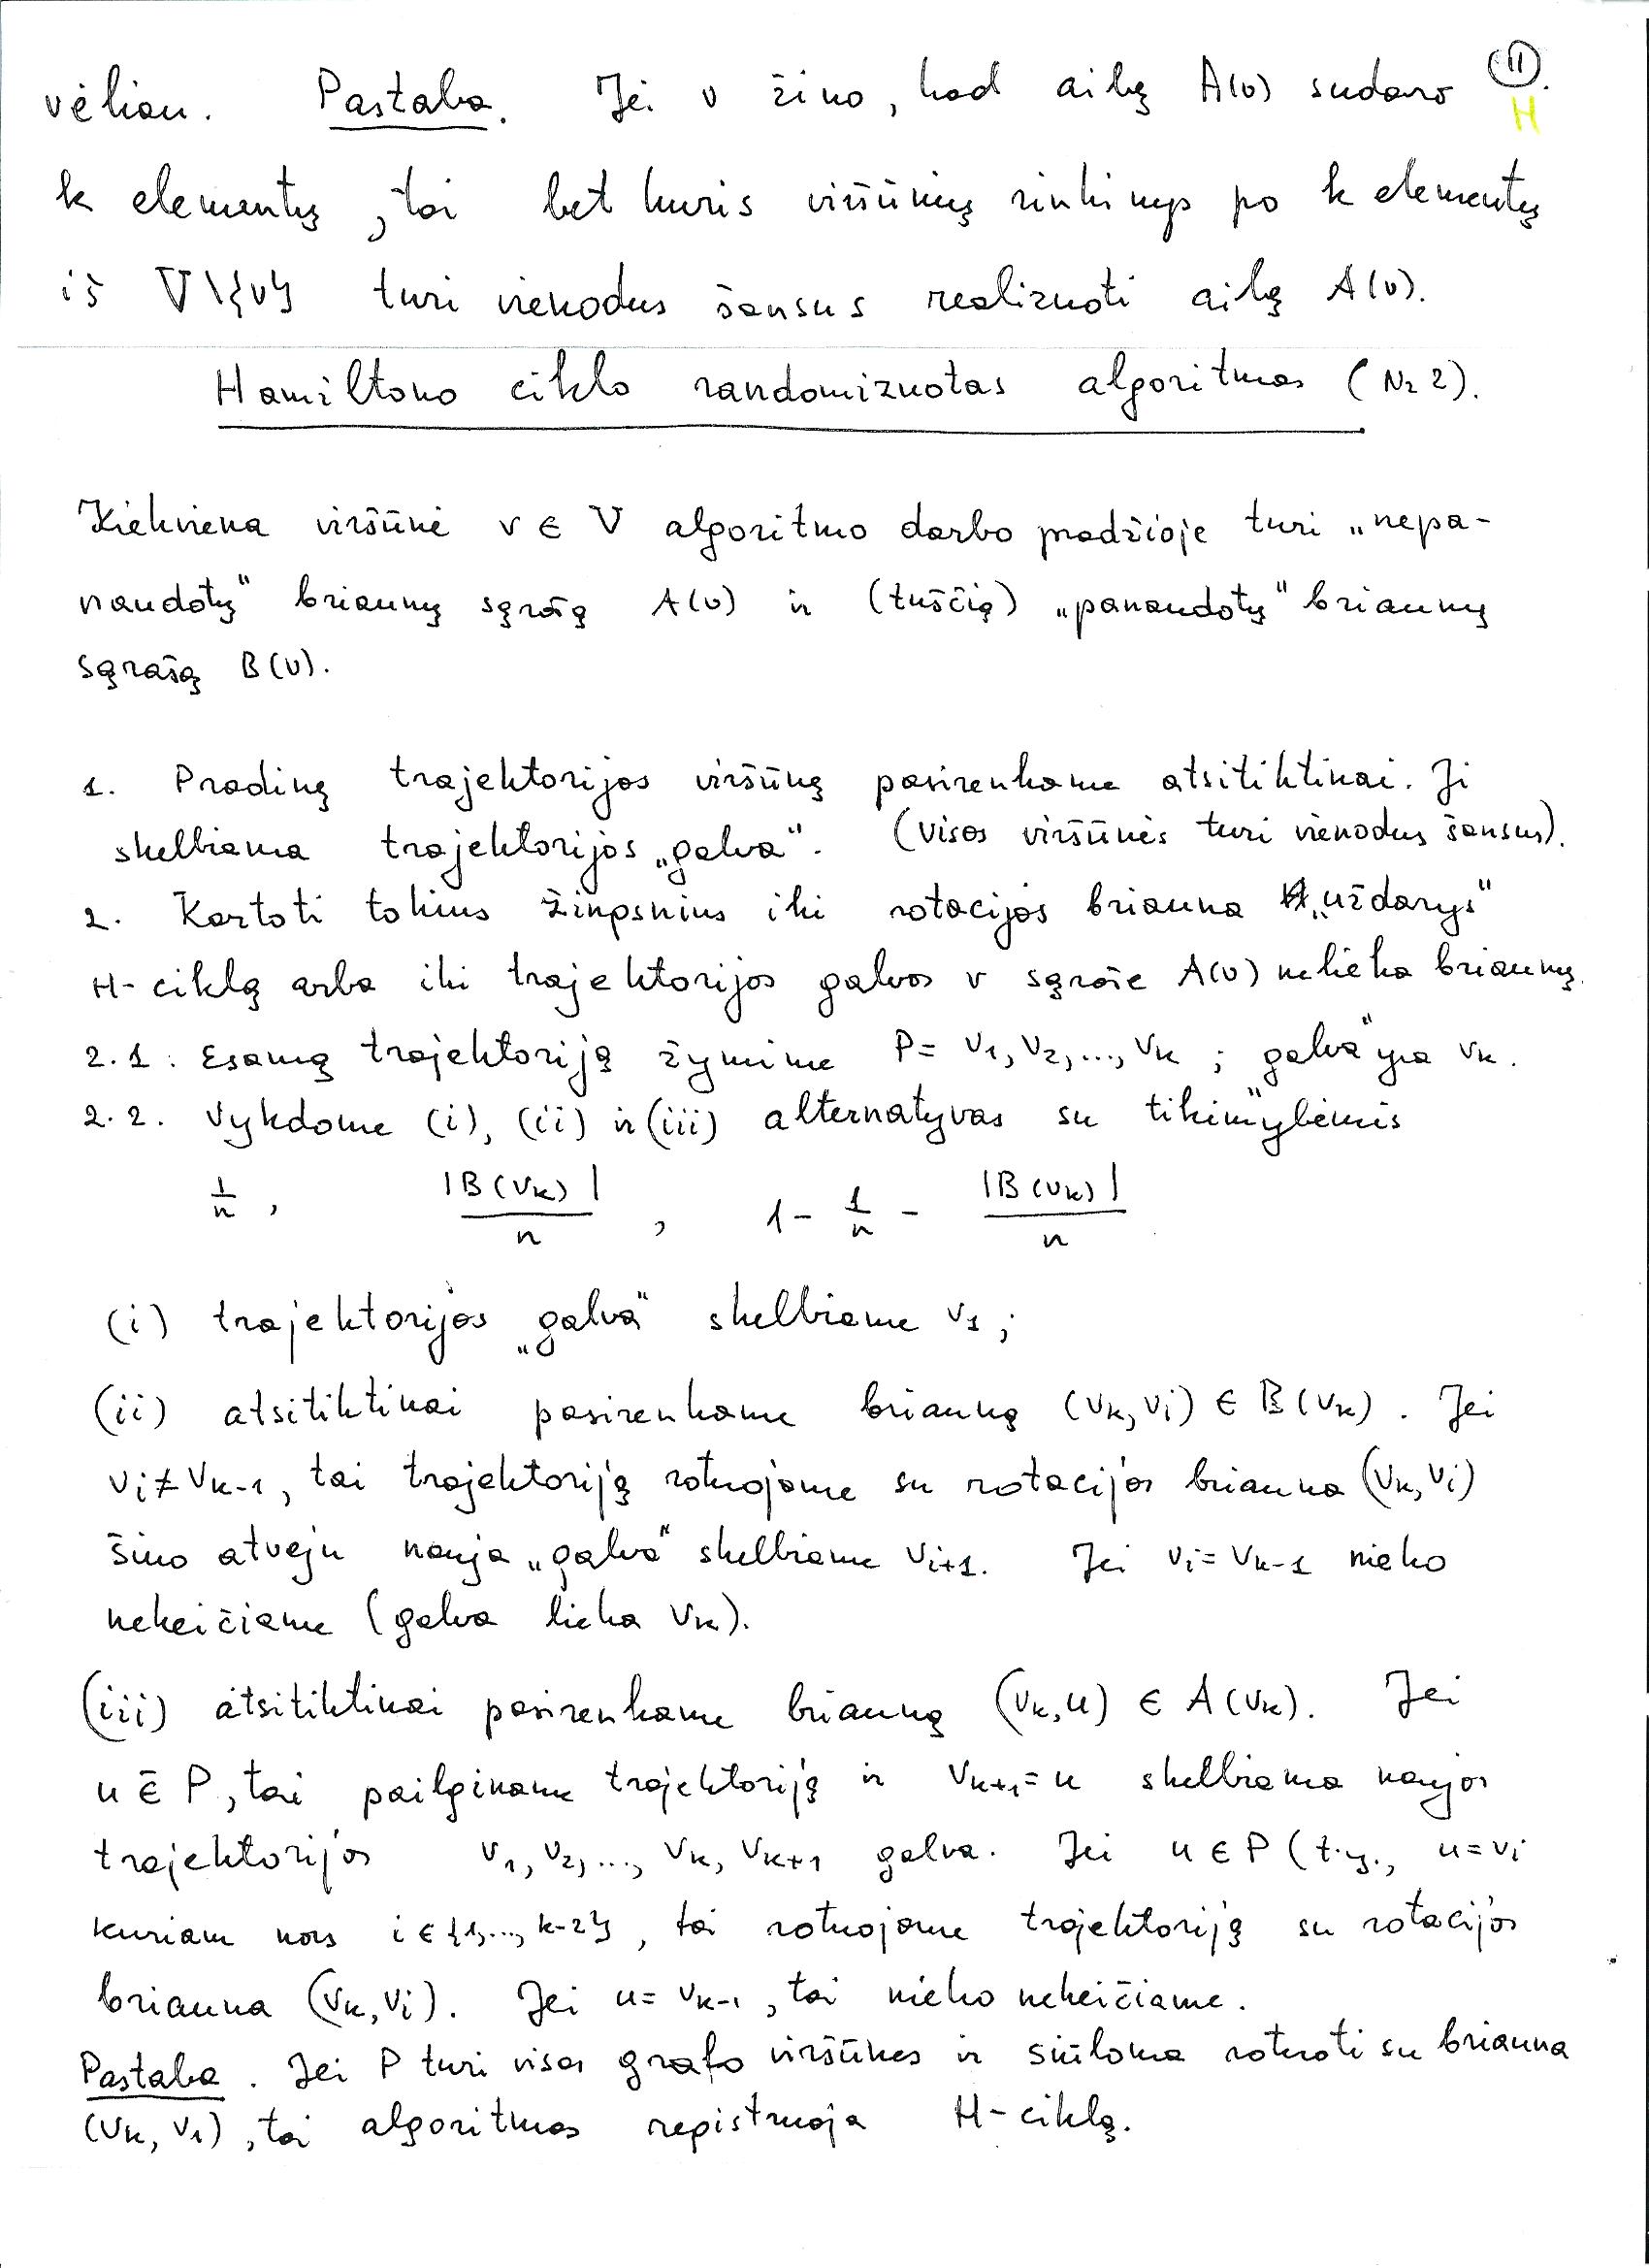 vėliau. Pastaba. Jei v žino, kad aibę A(v) sudaro (11).
H
k elementų, tai bet kuris viršūnių rinkinys po k elementų
iš V\{v} turi vienodus šansus realizuoti aibę A(v).
Hamiltono ciklo randomizuotas algoritmas (Nr 2).
Kiekviena viršūnė v ∈ V algoritmo darbo pradžioje turi „nepa-
naudotų" briaunų sąrašą A(v) ir (tuščią) „panaudotų" briaunų
sąrašą B(v).
1. Pradinę trajektorijos viršūnę pasirenkame atsitiktinai. Ji
skelbiama trajektorijos „galva". (visos viršūnės turi vienodus šansus).
2. Kartoti tokius žingsnius iki rotacijos briauna „uždarys"
H-ciklą arba iki trajektorijos galvos v sąraše A(v) nelieka briaunų.
2.1. Esamą trajektoriją žymime P = v1, v2, ..., vk ; „galva" yra vk.
2.2. Vykdome (i), (ii) ir (iii) alternatyvas su tikimybėmis
1/n , |B(vk)|/n , 1 - 1/n - |B(vk)|/n
(i) trajektorijos „galva" skelbiame v1 ;
(ii) atsitiktinai pasirenkame briauną (vk, vi) ∈ B(vk). Jei
vi ≠ vk-1, tai trajektoriją rotuojame su rotacijos briauna (vk, vi)
šiuo atveju nauja „galva" skelbiame vi+1. Jei vi = vk-1 nieko
nekeičiame (galva lieka vk).
(iii) atsitiktinai pasirenkame briauną (vk, u) ∈ A(vk). Jei
u ∉ P, tai pailginame trajektoriją ir vk+1 = u skelbiama naujos
trajektorijos v1, v2, ..., vk, vk+1 galva. Jei u ∈ P (t.y., u = vi
kuriam nors i ∈ {1, ..., k-2}, tai rotuojame trajektoriją su rotacijos
briauna (vk, vi). Jei u = vk-1, tai nieko nekeičiame.
Pastaba. Jei P turi visas grafo viršūnes ir siūloma rotuoti su briauna
(vk, v1), tai algoritmas registruoja H-ciklą.